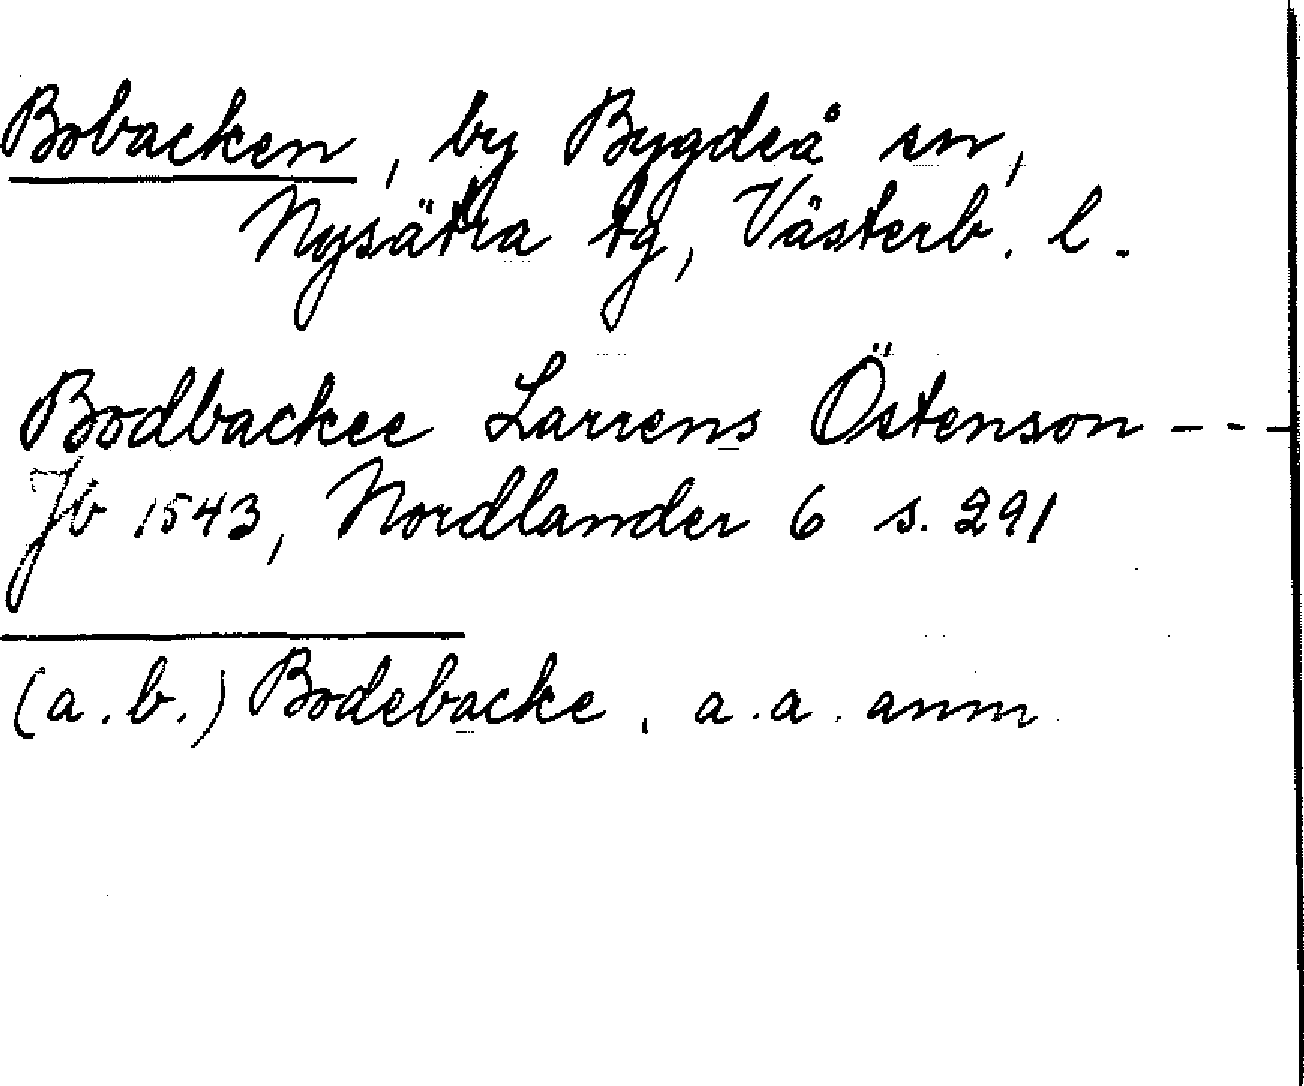 Bobacken, by Bygdeå sn,
Nysätra tg, Västerb. l.
Bodbackee Larrens Östenson ---
Jb 1543, Nordlander 6 s. 291
(a.b.) Bodebacke, a.a. anm.